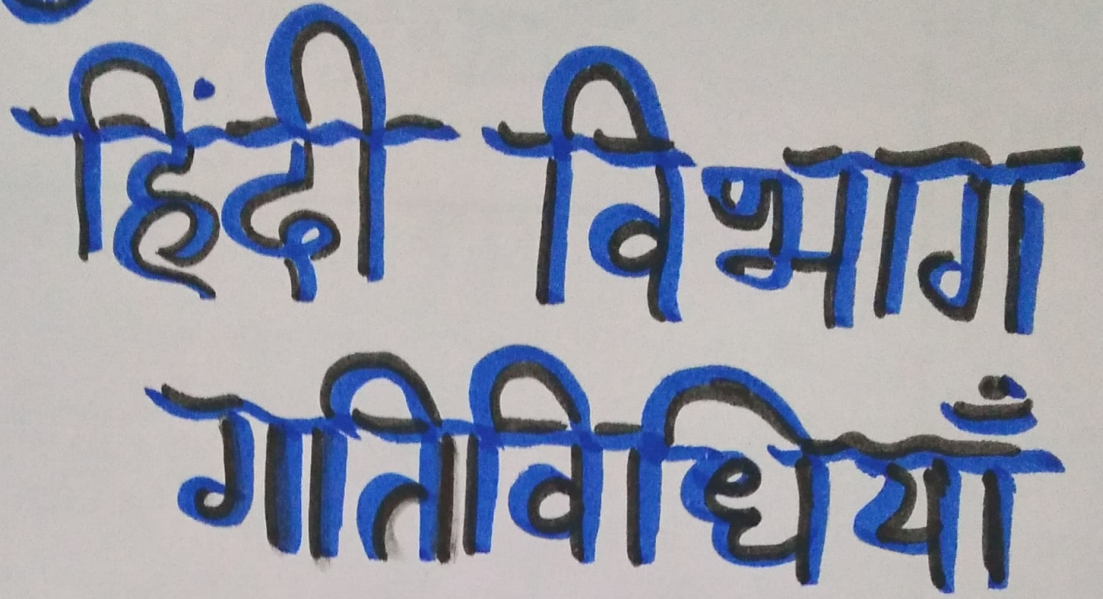 हिंदी विभाग
गतिविधियाँ